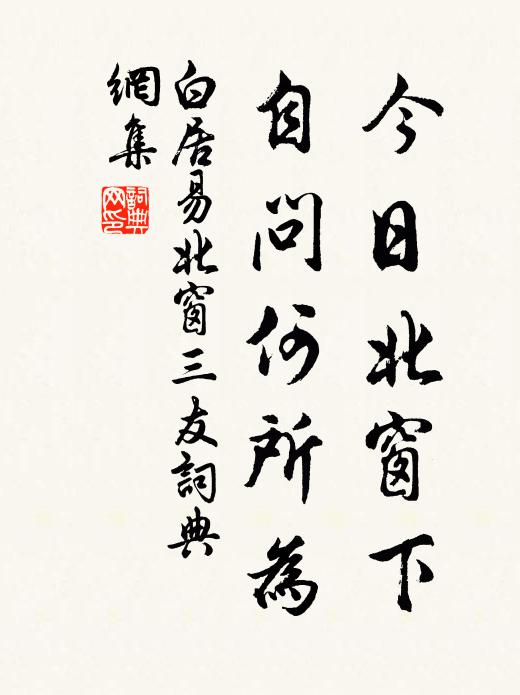 今日北窗下
自問何所為
白居易北窗三友詞典
網集
詞典
网印